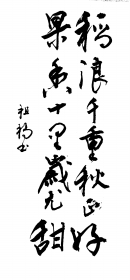 稻浪千重秋正好
果香十里岁尤甜
祖扬书